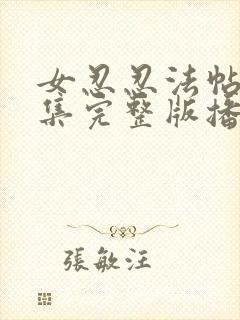 女忍忍法帖
集完整版播
張敏汪